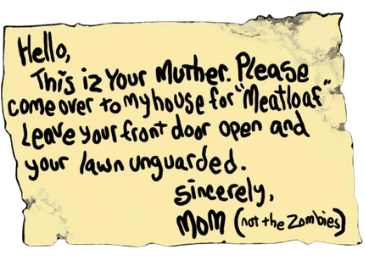 Hello,
This iz Your Muther. Please
come over to my house for "Meatloaf"
Leave your front door open and
your lawn unguarded.
Sincerely,
MOM (not the Zombies)